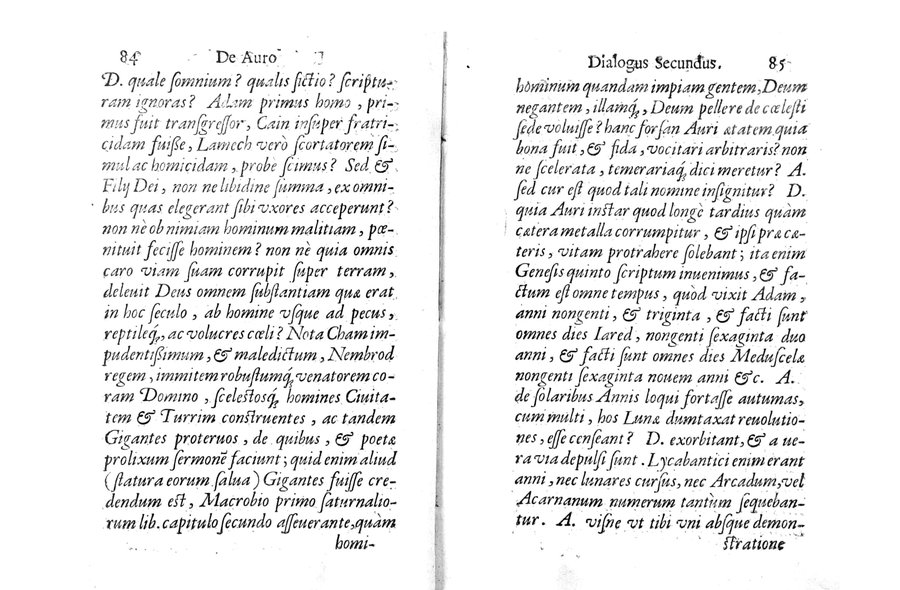 84 De Auro
D. quale somnium? qualis fictio? scriptu-
ram ignoras? Adam primus homo, pri-
mus fuit transgressor, Cain insuper fratri-
cidam fuisse, Lamech verò scortatorem si-
mul ac homicidam, probè scimus? Sed &
Filij Dei, non ne libidine summa, ex omni-
bus quas elegerant sibi vxores acceperunt?
non nè ob nimiam hominum malitiam, pœ-
nituit fecisse hominem? non nè quia omnis
caro viam suam corrupit super terram,
deleuit Deus omnem substantiam quæ erat
in hoc seculo, ab homine vsque ad pecus,
reptileq́;, ac volucres cœli? Nota Cham im-
pudentissimum, & maledictum, Nembrod
regem, immitem robustumq́; venatorem co-
ram Domino, scelestosq́; homines Ciuita-
tem & Turrim construentes, ac tandem
Gigantes proteruos, de quibus, & poetæ
prolixum sermonē faciunt; quid enim aliud
(statura eorum salua) Gigantes fuisse cre-
dendum est, Macrobio primo saturnalio-
rum lib. capitulo secundo asseuerante, quàm
homi-
Dialogus Secundus. 85
hominum quandam impiam gentem, Deum
negantem, illamq́;, Deum pellere de cœlesti
sede voluisse? hanc forsan Auri ætatem quia
bona fuit, & fida, vocitari arbitraris? non
ne scelerata, temerariaq́; dici meretur? A.
sed cur est quod tali nomine insignitur? D.
quia Auri instar quod longè tardius quàm
cætera metalla corrumpitur, & ipsi præ cæ-
teris, vitam protrahere solebant; ita enim
Genesis quinto scriptum inuenimus, & fa-
ctum est omne tempus, quòd vixit Adam,
anni nongenti, & triginta, & facti sunt
omnes dies Iared, nongenti sexaginta duo
anni, & facti sunt omnes dies Meduscelæ
nongenti sexaginta nouem anni &c. A.
de solaribus Annis loqui fortasse autumas,
cum multi, hos Lunæ dumtaxat reuolutio-
nes, esse censeant? D. exorbitant, & a ue-
ra via depulsi sunt. Lycabantici enim erant
anni, nec lunares cursus, nec Arcadum, vel
Acarnanum numerum tantùm sequeban-
tur. A. visne vt tibi vni absque demon-
stratione